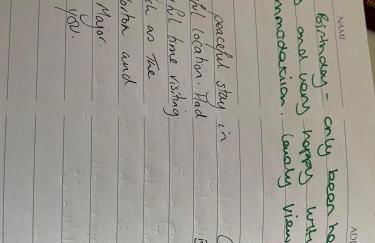 NAME
ADD
Birthday - only been he
and very happy with
mmodation. Lovely view
peaceful stay in
ful location. Had
ful time visiting
ch as The
orton and
Major.
you.